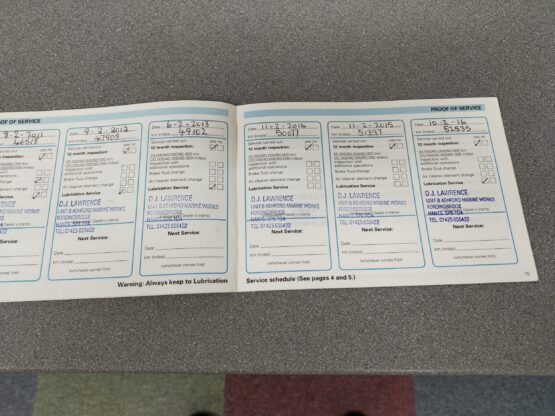 OOF OF SERVICE
8-2-2011
46518
inspection
change
change
Service
RENCE
Service:
Date 9-2-2012
km (miles) 47908
Service carried out: yes no
12 month inspection
inspection with
additional operations
Brake fluid change
Air cleaner element change
Lubrication Service
D.J. LAWRENCE
UNIT B ASHFORD MARINE WORKS
FORDINGBRIDGE
TEL: 01425 655422
Next Service:
Date
km (miles)
(whichever comes first)
Date 6-2-2013
km (miles) 49102
Service carried out: yes no
12 month inspection
inspection with
additional operations
Brake fluid change
Air cleaner element change
Lubrication Service
D.J. LAWRENCE
UNIT B ASHFORD MARINE WORKS
FORDINGBRIDGE
TEL: 01425 655422
Next Service:
Date
km (miles)
(whichever comes first)
Warning: Always keep to Lubrication
PROOF OF SERVICE
Date 11-2-2014
km (miles) 50077
Service carried out: yes no
12 month inspection
inspection with
additional operations
Brake fluid change
Air cleaner element change
Lubrication Service
D.J. LAWRENCE
UNIT B ASHFORD MARINE WORKS
FORDINGBRIDGE
TEL: 01425 655422
Next Service:
Date
km (miles)
(whichever comes first)
Date 11-2-2015
km (miles) 51397
Service carried out: yes no
12 month inspection
inspection with
additional operations
Brake fluid change
Air cleaner element change
Lubrication Service
D.J. LAWRENCE
UNIT B ASHFORD MARINE WORKS
FORDINGBRIDGE
TEL: 01425 655422
Next Service:
Date
km (miles)
(whichever comes first)
Date 10-2-16
km (miles) 52535
Service carried out: yes no
12 month inspection
inspection with
additional operations
Brake fluid change
Air cleaner element change
Lubrication Service
D.J. LAWRENCE
UNIT B ASHFORD MARINE WORKS
FORDINGBRIDGE
TEL: 01425 655422
Next Service:
Date
km (miles)
(whichever comes first)
Service schedule (See pages 4 and 5.)
15